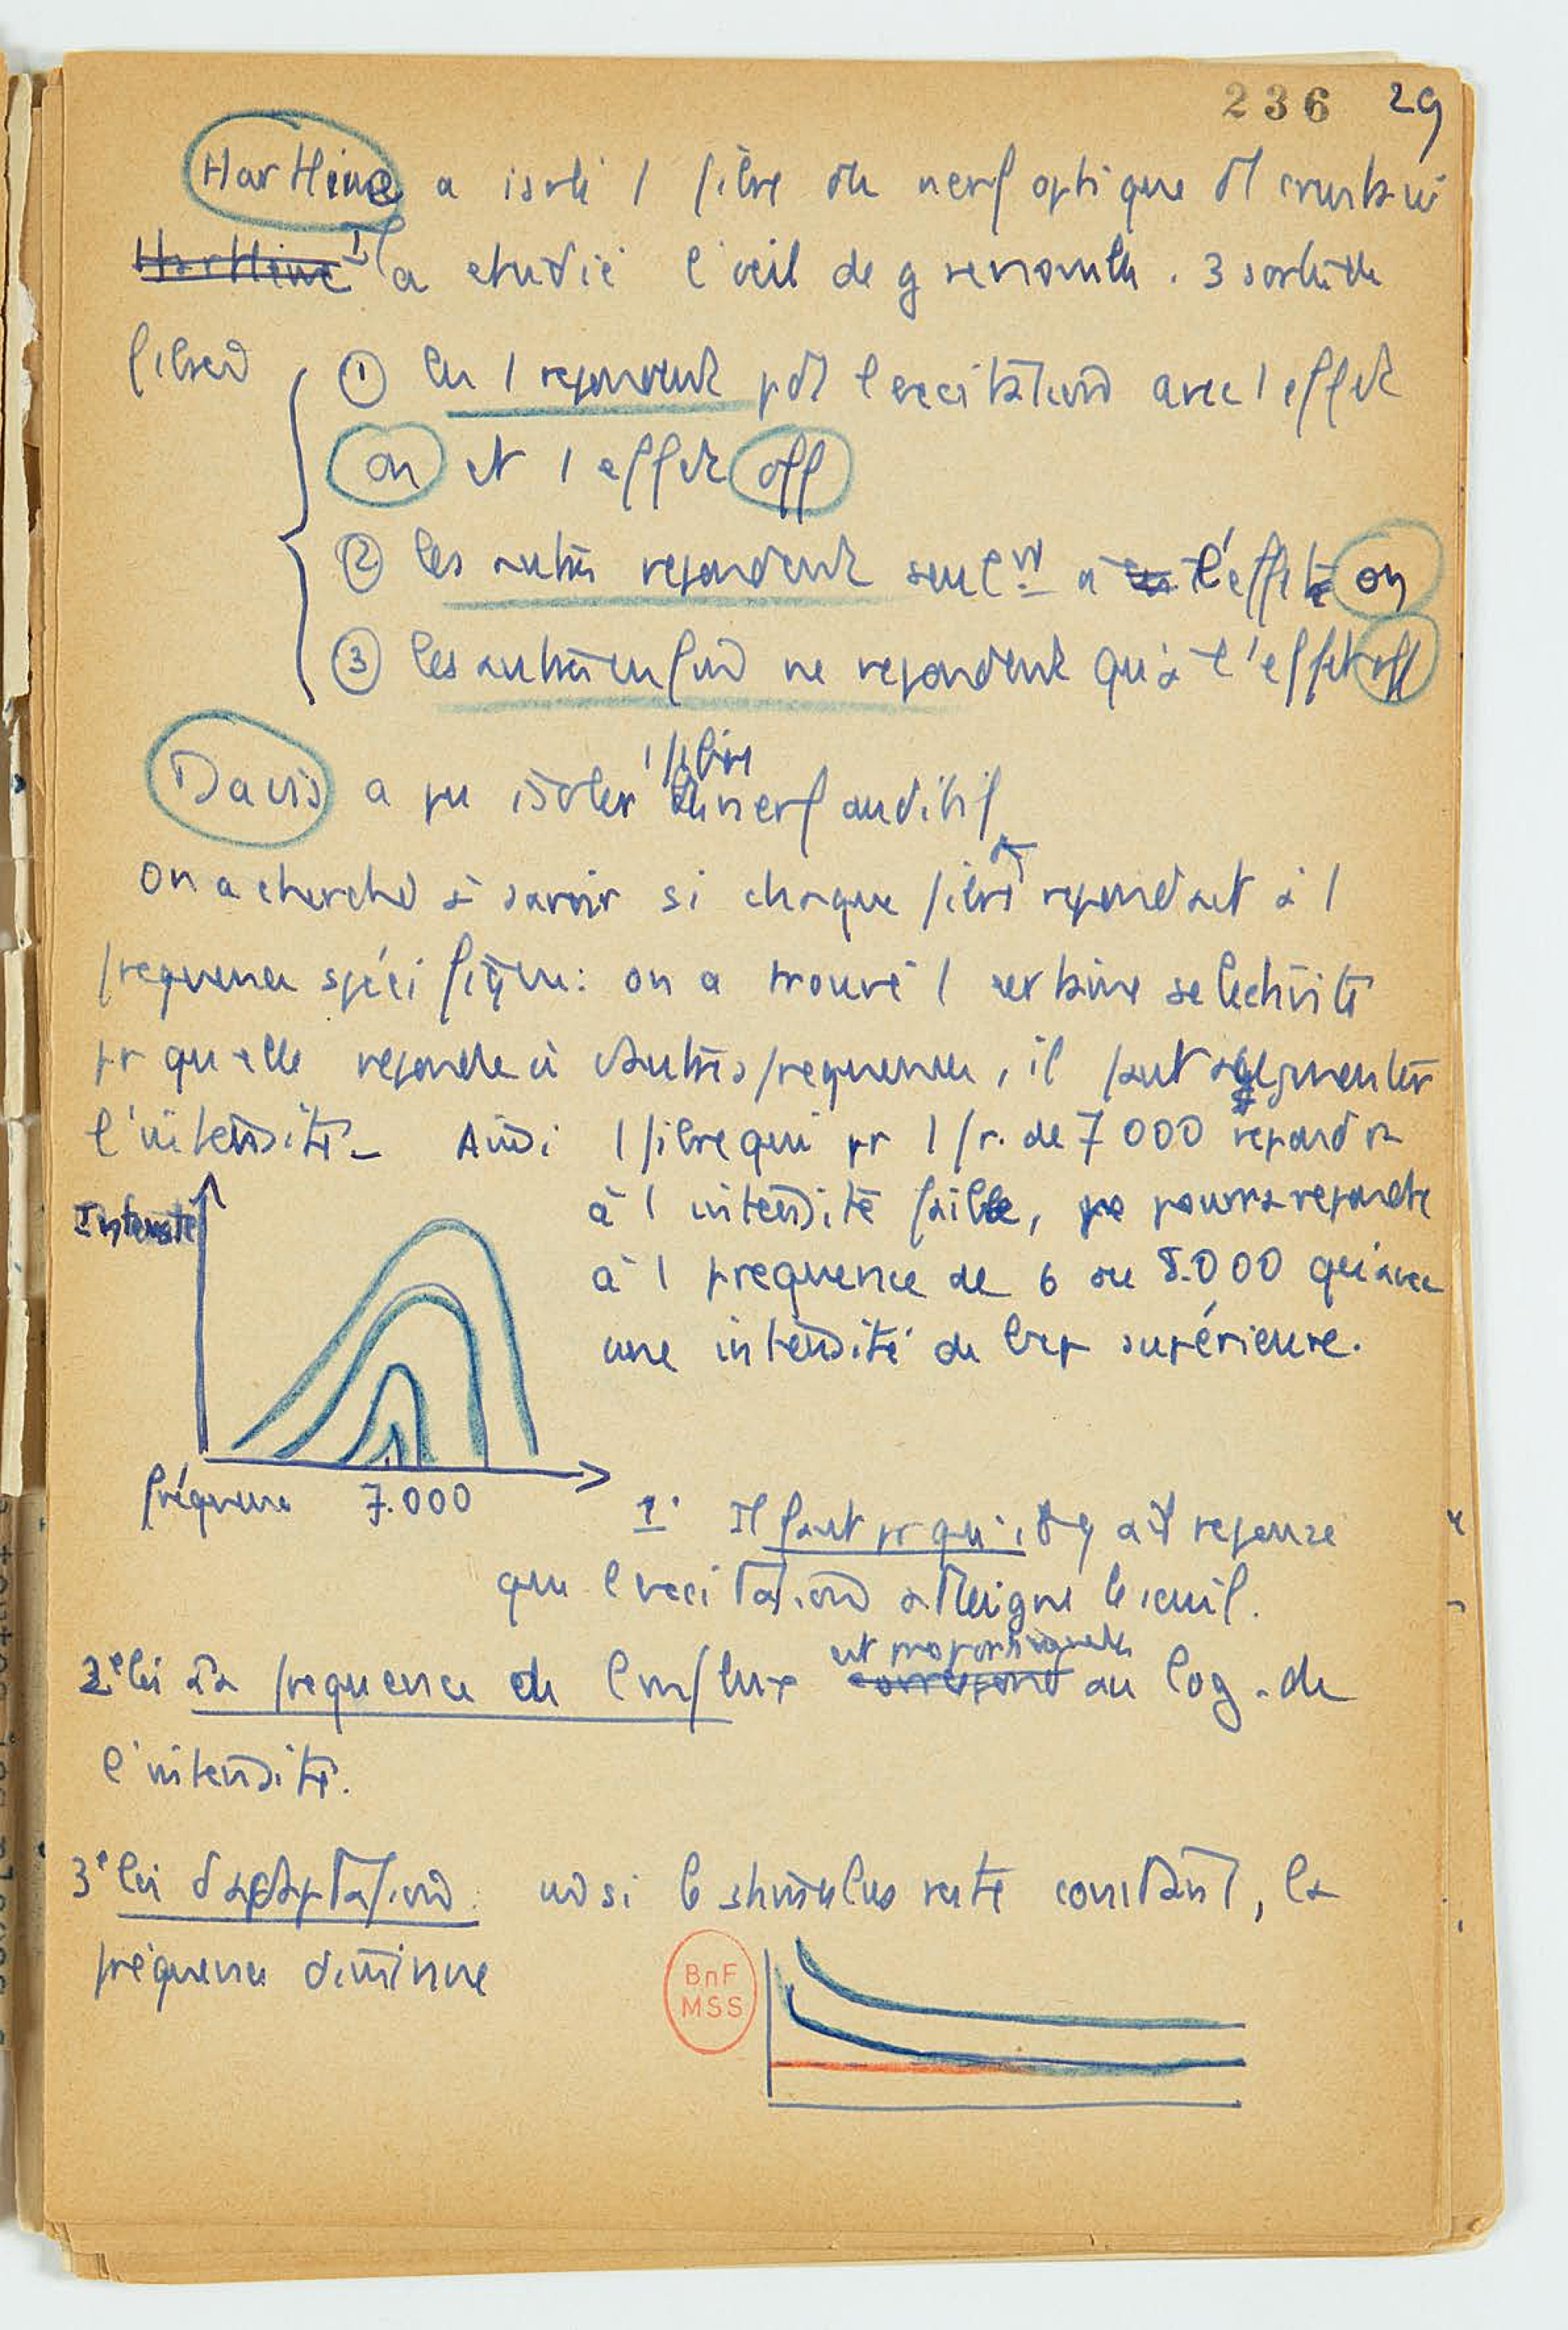 236 29
Hartline a isolé 1 fibre du nerf optique
Hartline Il a etudié l'œil de grenouille. 3 sortes de
fibres
① les 1 repondent pdt l'excitation avec 1 effet
on et 1 effet off
② les autres repondent seulnt à l'effet on
③ les autres enfin ne repondent qu'à l'effet off
Davis a pu isoler 1 fibre du nerf auditif
on a cherché à savoir si chaque fibre repondait à 1
frequence spécifique: on a trouvé 1 certaine selectivité
pr qu'elle reponde à d'autres frequences, il faut augmenter
l'intensité_ Ainsi 1 fibre qui pr 1 fr. de 7 000 repondra
à 1 intensité faible, pourra repondre
à 1 frequence de 6 ou 8.000 qu'avec
une intensité de bcp supérieure.
Intensité
fréquence 7.000
1° Il faut pr qu'il y ait reponse
que l'excitation atteigne le seuil.
2e loi la frequence de l'influx est proportionnelle correspond au log. de
l'intensité.
3e loi d'adaptation: si le stimulus reste constant, la
fréquence diminue
BnF
MSS